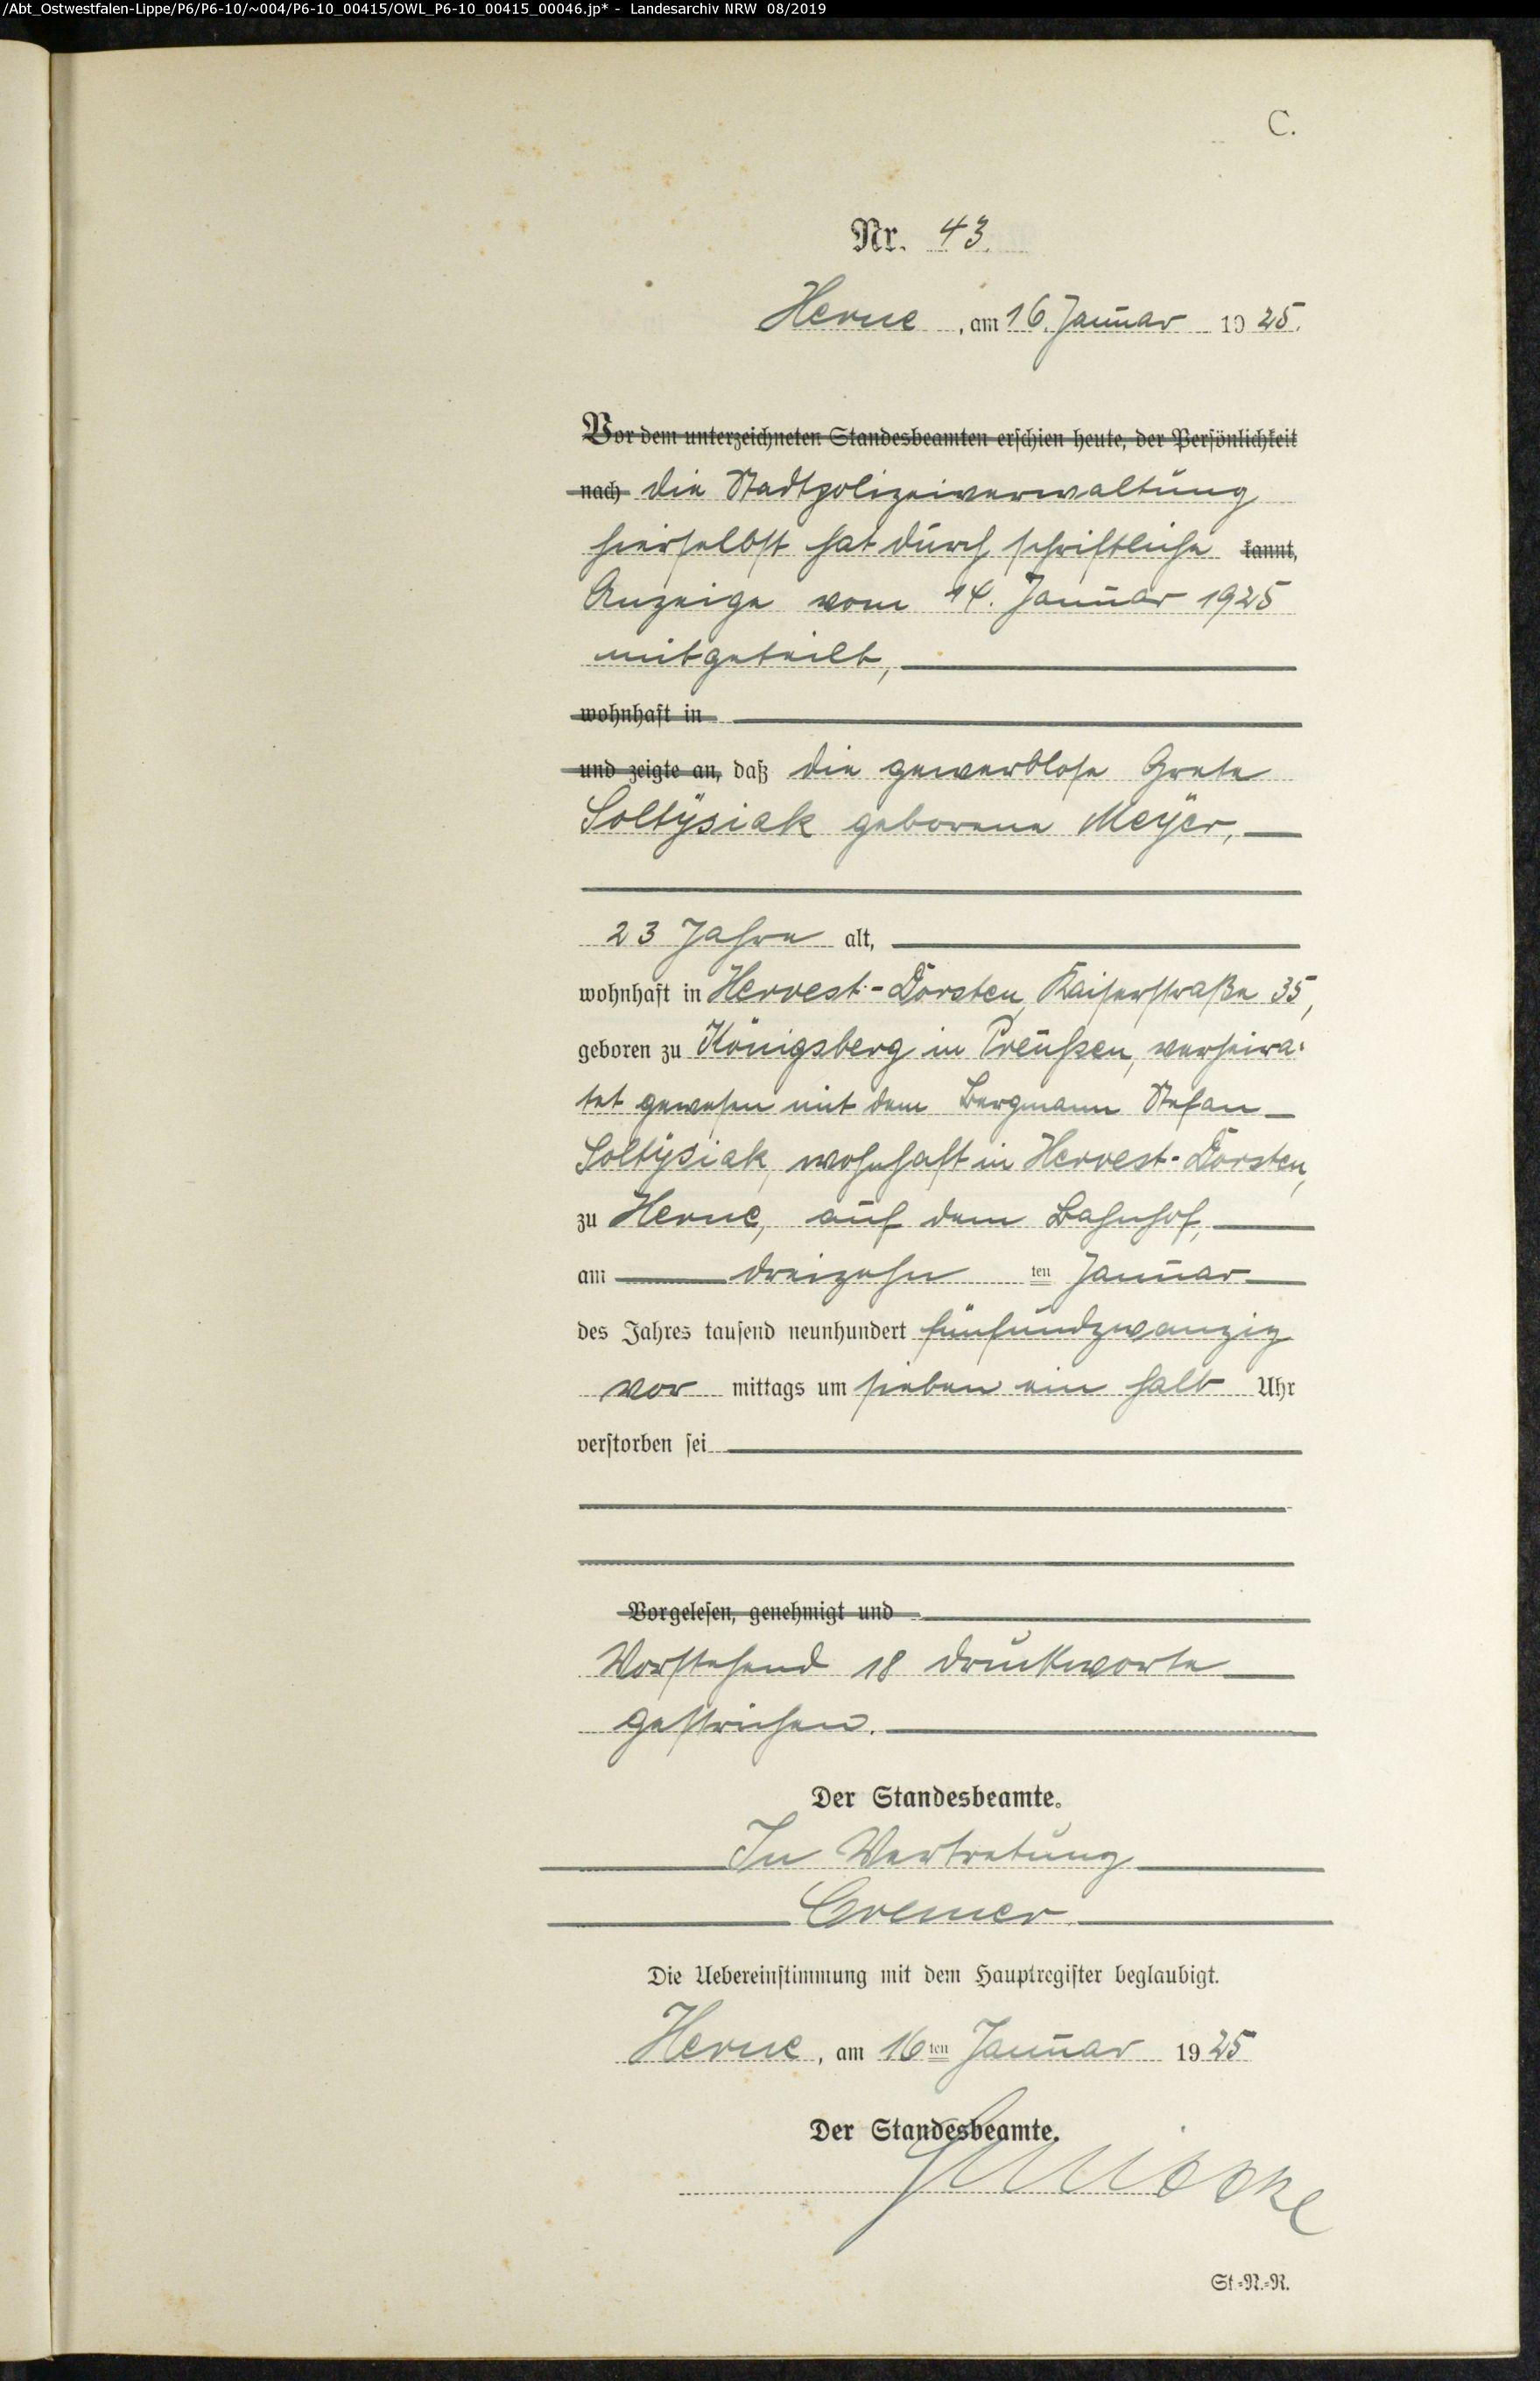 /Abt_Ostwestfalen-Lippe/P6/P6-10/~004/P6-10_00415/OWL_P6-10_00415_00046.jp* - Landesarchiv NRW 08/2019
C.
Nr. 43.
Herne, am 16. Januar 1925.
Vor dem unterzeichneten Standesbeamten erschien heute, der Persönlichkeit
nach die Stadtpolizeiverwaltung
hierselbst hat durch schriftliche kannt,
Anzeige vom 14. Januar 1925
mitgeteilt,
wohnhaft in
und zeigte an, daß die gewerblose Grete
Soltysiak geborene Meyer,
23 Jahre alt,
wohnhaft in Hervest-Dorsten, Kaiserstraße 35,
geboren zu Königsberg in Preußen, verheira-
tet gewesen mit dem Bergmann Stefan
Soltysiak, wohnhaft in Hervest-Dorsten,
zu Herne, auf dem Bahnhof,
am dreizehn ten Januar
des Jahres tausend neunhundert fünfundzwanzig
vor mittags um sieben ein halb Uhr
verstorben sei
Vorgelesen, genehmigt und
Vorstehend 18 Druckworte
gestrichen.
Der Standesbeamte.
In Vertretung
Cremer.
Die Uebereinstimmung mit dem Hauptregister beglaubigt.
Herne, am 16ten Januar 1925
Der Standesbeamte.
St.-N.-R.